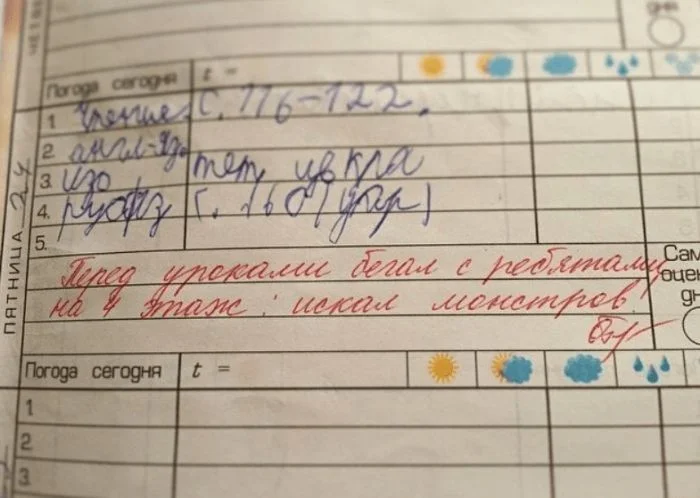 ЧЕТВЕ
дня
Погода сегодня t =
1 Чтение с. 116-122.
2. англ-яз.
3. изо, тет, цв кра
4. с. 160 (упр)
5.
ПЯТНИЦА 24
Перед уроками бегал с ребятами
на 4 этаж: искал монстров!
Сам
оцен
дн
Погода сегодня t =
1
2
3.